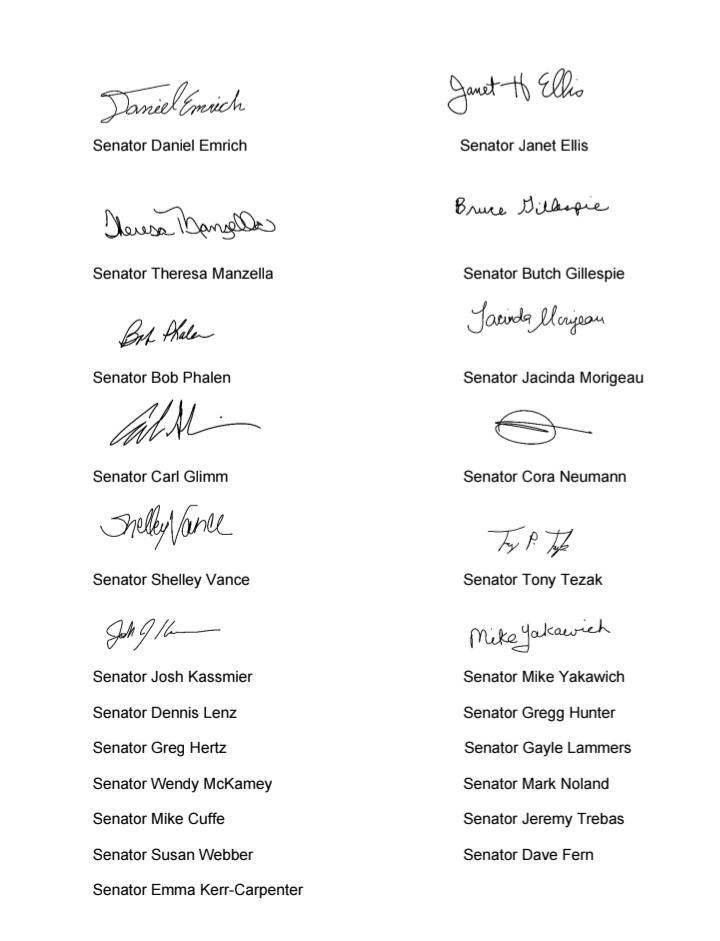 Daniel Emrich
Janet H Ellis
Senator Daniel Emrich
Senator Janet Ellis
Theresa Manzella
Bruce Gillespie
Senator Theresa Manzella
Senator Butch Gillespie
Bob Phalen
Jacinda Morigeau
Senator Bob Phalen
Senator Jacinda Morigeau
Senator Carl Glimm
Senator Cora Neumann
Shelley Vance
Senator Shelley Vance
Senator Tony Tezak
Mike Yakawich
Senator Josh Kassmier
Senator Mike Yakawich
Senator Dennis Lenz
Senator Gregg Hunter
Senator Greg Hertz
Senator Gayle Lammers
Senator Wendy McKamey
Senator Mark Noland
Senator Mike Cuffe
Senator Jeremy Trebas
Senator Susan Webber
Senator Dave Fern
Senator Emma Kerr-Carpenter